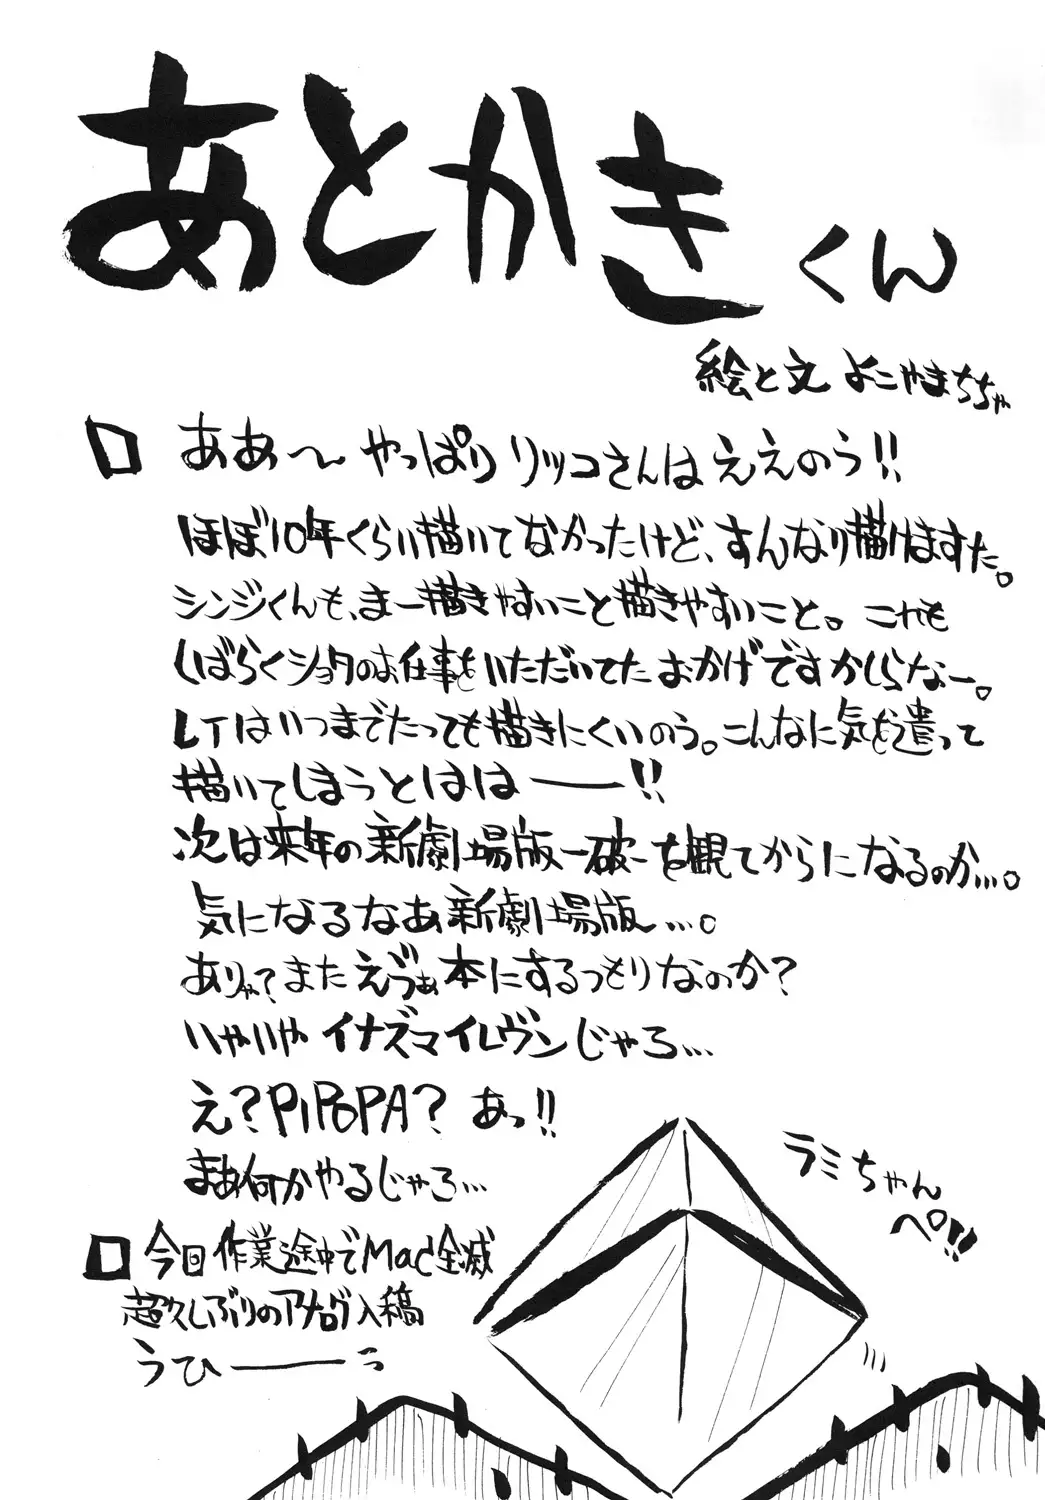 あとかきくん
絵と文 よこやまちちゃ
□ ああ〜やっぱりリツコさんはええのう!!
ほぼ10年くらい描いてなかったけど、すんなり描けますた。
シンジくんも、まー描きやすいこと描きやすいこと。これも
しばらくショタのお仕事をいただいてたおかげですかしらなー。
レイはいつまでたっても描きにくいのう。こんなに気を遣って
描いてしまうとはは――!!
次は来年の新劇場版－破－を観てからになるのか…。
気になるなあ新劇場版…。
ありゃ?またえゔぁ本にするつもりなのか?
いやいやイナズマイレヴンじゃろ…
え?PiPoPA? あっ!!
まあ何かやるじゃろ…
□ 今回作業途中でMac全滅
超久しぶりのアナログ入稿
うひ――っ
ラミちゃん
ペ!!